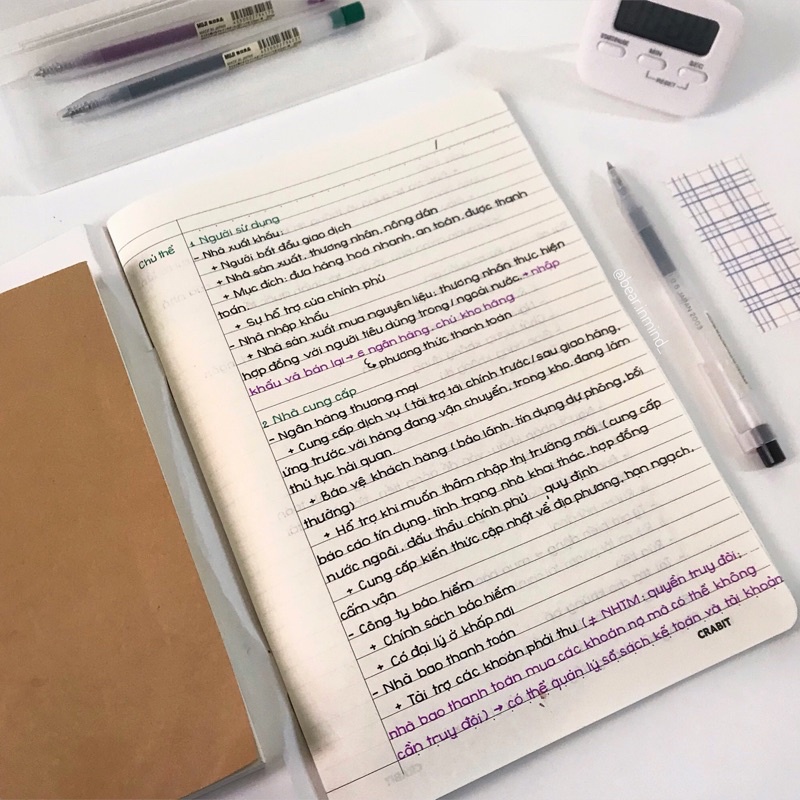 MUJ
TART/PAUSE
MIN
SEC
RESET
@bear.inmind_
Chủ thể
1. Người sử dụng
- Nhà xuất khẩu:
+ Người bắt đầu giao dịch
+ Nhà sản xuất, thương nhân, nông dân
+ Mục đích: đưa hàng hoá nhanh, an toàn, được thanh
toán.
+ Sự hỗ trợ của chính phủ
- Nhà nhập khẩu
+ Nhà sản xuất mua nguyên liệu, thương nhân thực hiện
hợp đồng với người tiêu dùng trong/ngoài nước → nhập
khẩu và bán lại → e ngân hàng, chủ kho hàng
↳ phương thức thanh toán
2. Nhà cung cấp
- Ngân hàng thương mại
+ Cung cấp dịch vụ (tài trợ tài chính trước/sau giao hàng,
ứng trước với hàng đang vận chuyển, trong kho, đang làm
thủ tục hải quan.
+ Bảo vệ khách hàng (bảo lãnh, tín dụng dự phòng, bồi
thường)
+ Hỗ trợ khi muốn thâm nhập thị trường mới (cung cấp
báo cáo tín dụng, tình trạng nhà khai thác, hợp đồng
nước ngoài, đấu thầu chính phủ
quy định
+ Cung cấp kiến thức cập nhật về địa phương, hạn ngạch,
cấm vận
- Công ty bảo hiểm
+ Chính sách bảo hiểm
+ Có đại lý ở khắp nơi
- Nhà bao thanh toán
+ Tài trợ các khoản phải thu (≠ NHTM: quyền truy đòi;
nhà bao thanh toán mua các khoản nợ mà có thể không
cần truy đòi) → có thể quản lý sổ sách kế toán và tài khoản
CRABIT